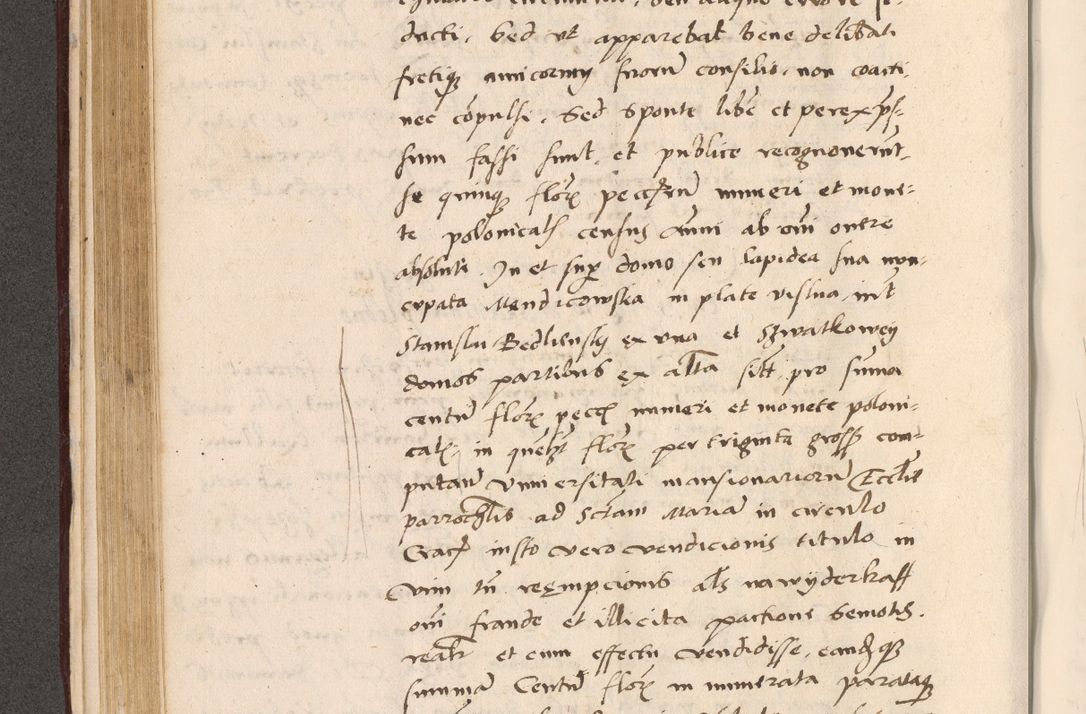 ducti. Sed ut apparebat bene delibati
fretiq amicorum suorum consilio, non coacti,
nec compulsi. Sed sponte libere et per expres-
sum fassi sunt, et publice recognoverunt,
se quinq florenos pecuniarum numeri et mone-
te polonicalis census annui ab omni onere
absoluti. In et super domo seu lapidea sua nun-
cupata Mendicowska in platea vislna, inter
Stanislai Bedlienski ex una et Szwatkowey
domos partibus ex altera sitis, pro summa
centum florenorum pecuniarum numeri et monete poloni-
calis, in quemlibet florenum per triginta grossos com-
putando Universitati mansionariorum Ecclesie
parrochialis ad Sanctam Mariam in circulo
Cracoviensi iusto vero vendicionis titulo, in
vim tamen reempcionis als na wyderkaff
omni fraude et illicita pactione semotis.
realiter et cum effectu vendidisse, eandemq
summam Centum florenorum in numerata parataq